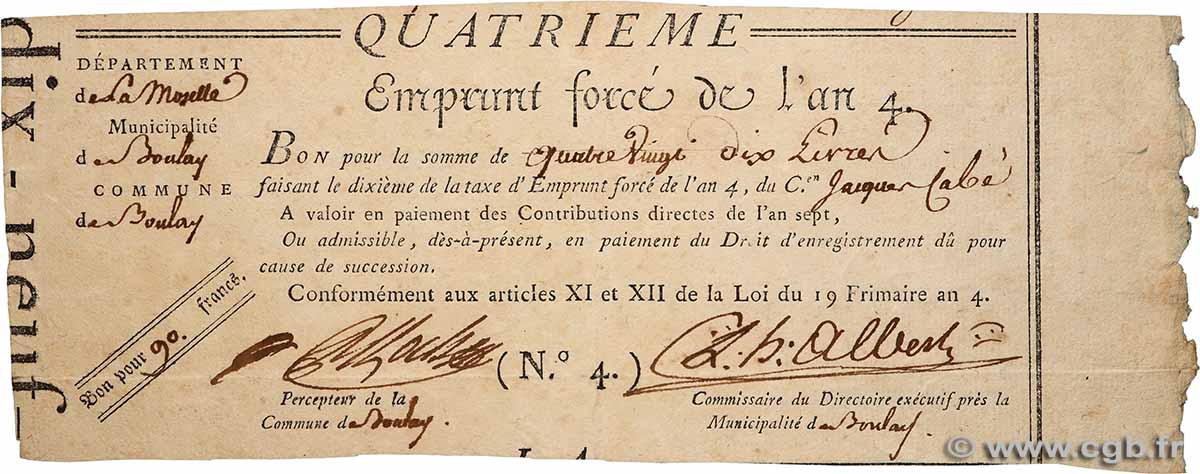 QUATRIEME
Emprunt forcé de l'an 4.
DÉPARTEMENT
de La Moselle
Municipalité
de Boulay
COMMUNE
de Boulay
BON pour la somme de quatre Vingt dix Livres
faisant le dixième de la taxe d'Emprunt forcé de l'an 4, du C.en Jacques Cabé
A valoir en paiement des Contributions directes de l'an sept,
Ou admissible, dès-à-présent, en paiement du Droit d'enregistrement dû pour
cause de succession.
Conformément aux articles XI et XII de la Loi du 19 Frimaire an 4.
Bon pour 90. francs.
dix-neuf
(N.º 4.)
Percepteur de la
Commune de Boulay.
Albert
Commissaire du Directoire exécutif près la
Municipalité de Boulay
© www.cgb.fr